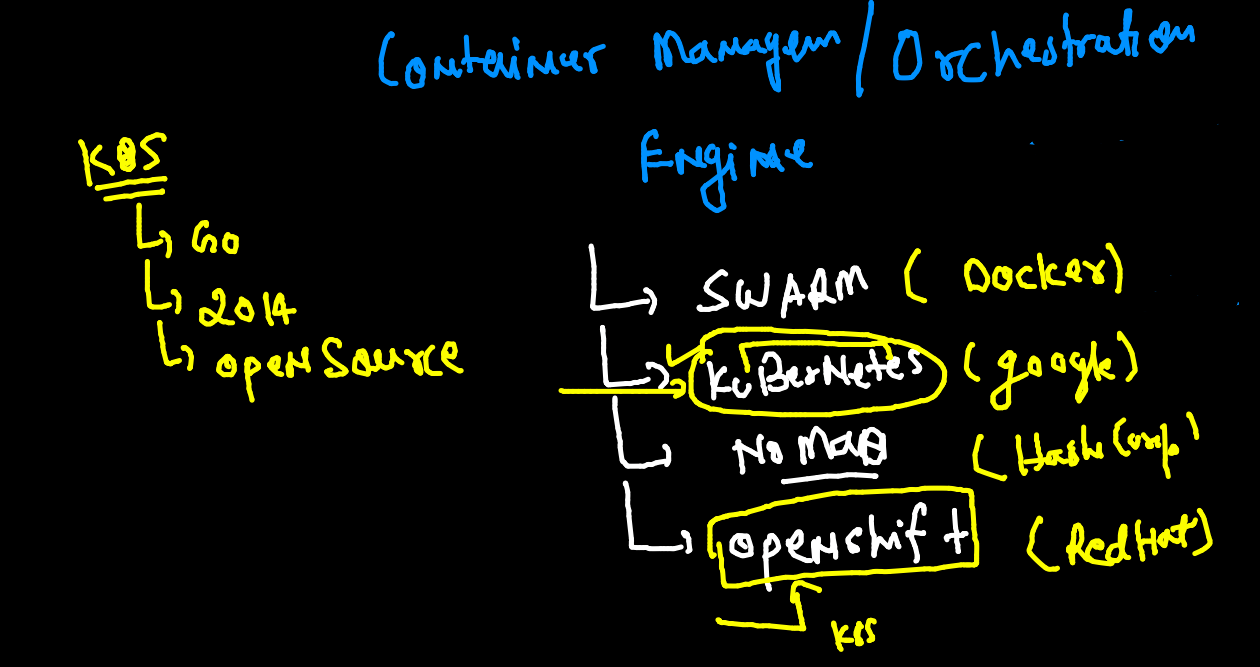 Container Managem/Orchestration
Engine
K8S
Go
2014
openSource
SWARM (Docker)
KuBerNetes (google)
NoMaD (HashiCorp)
openshift (RedHat)
K8S